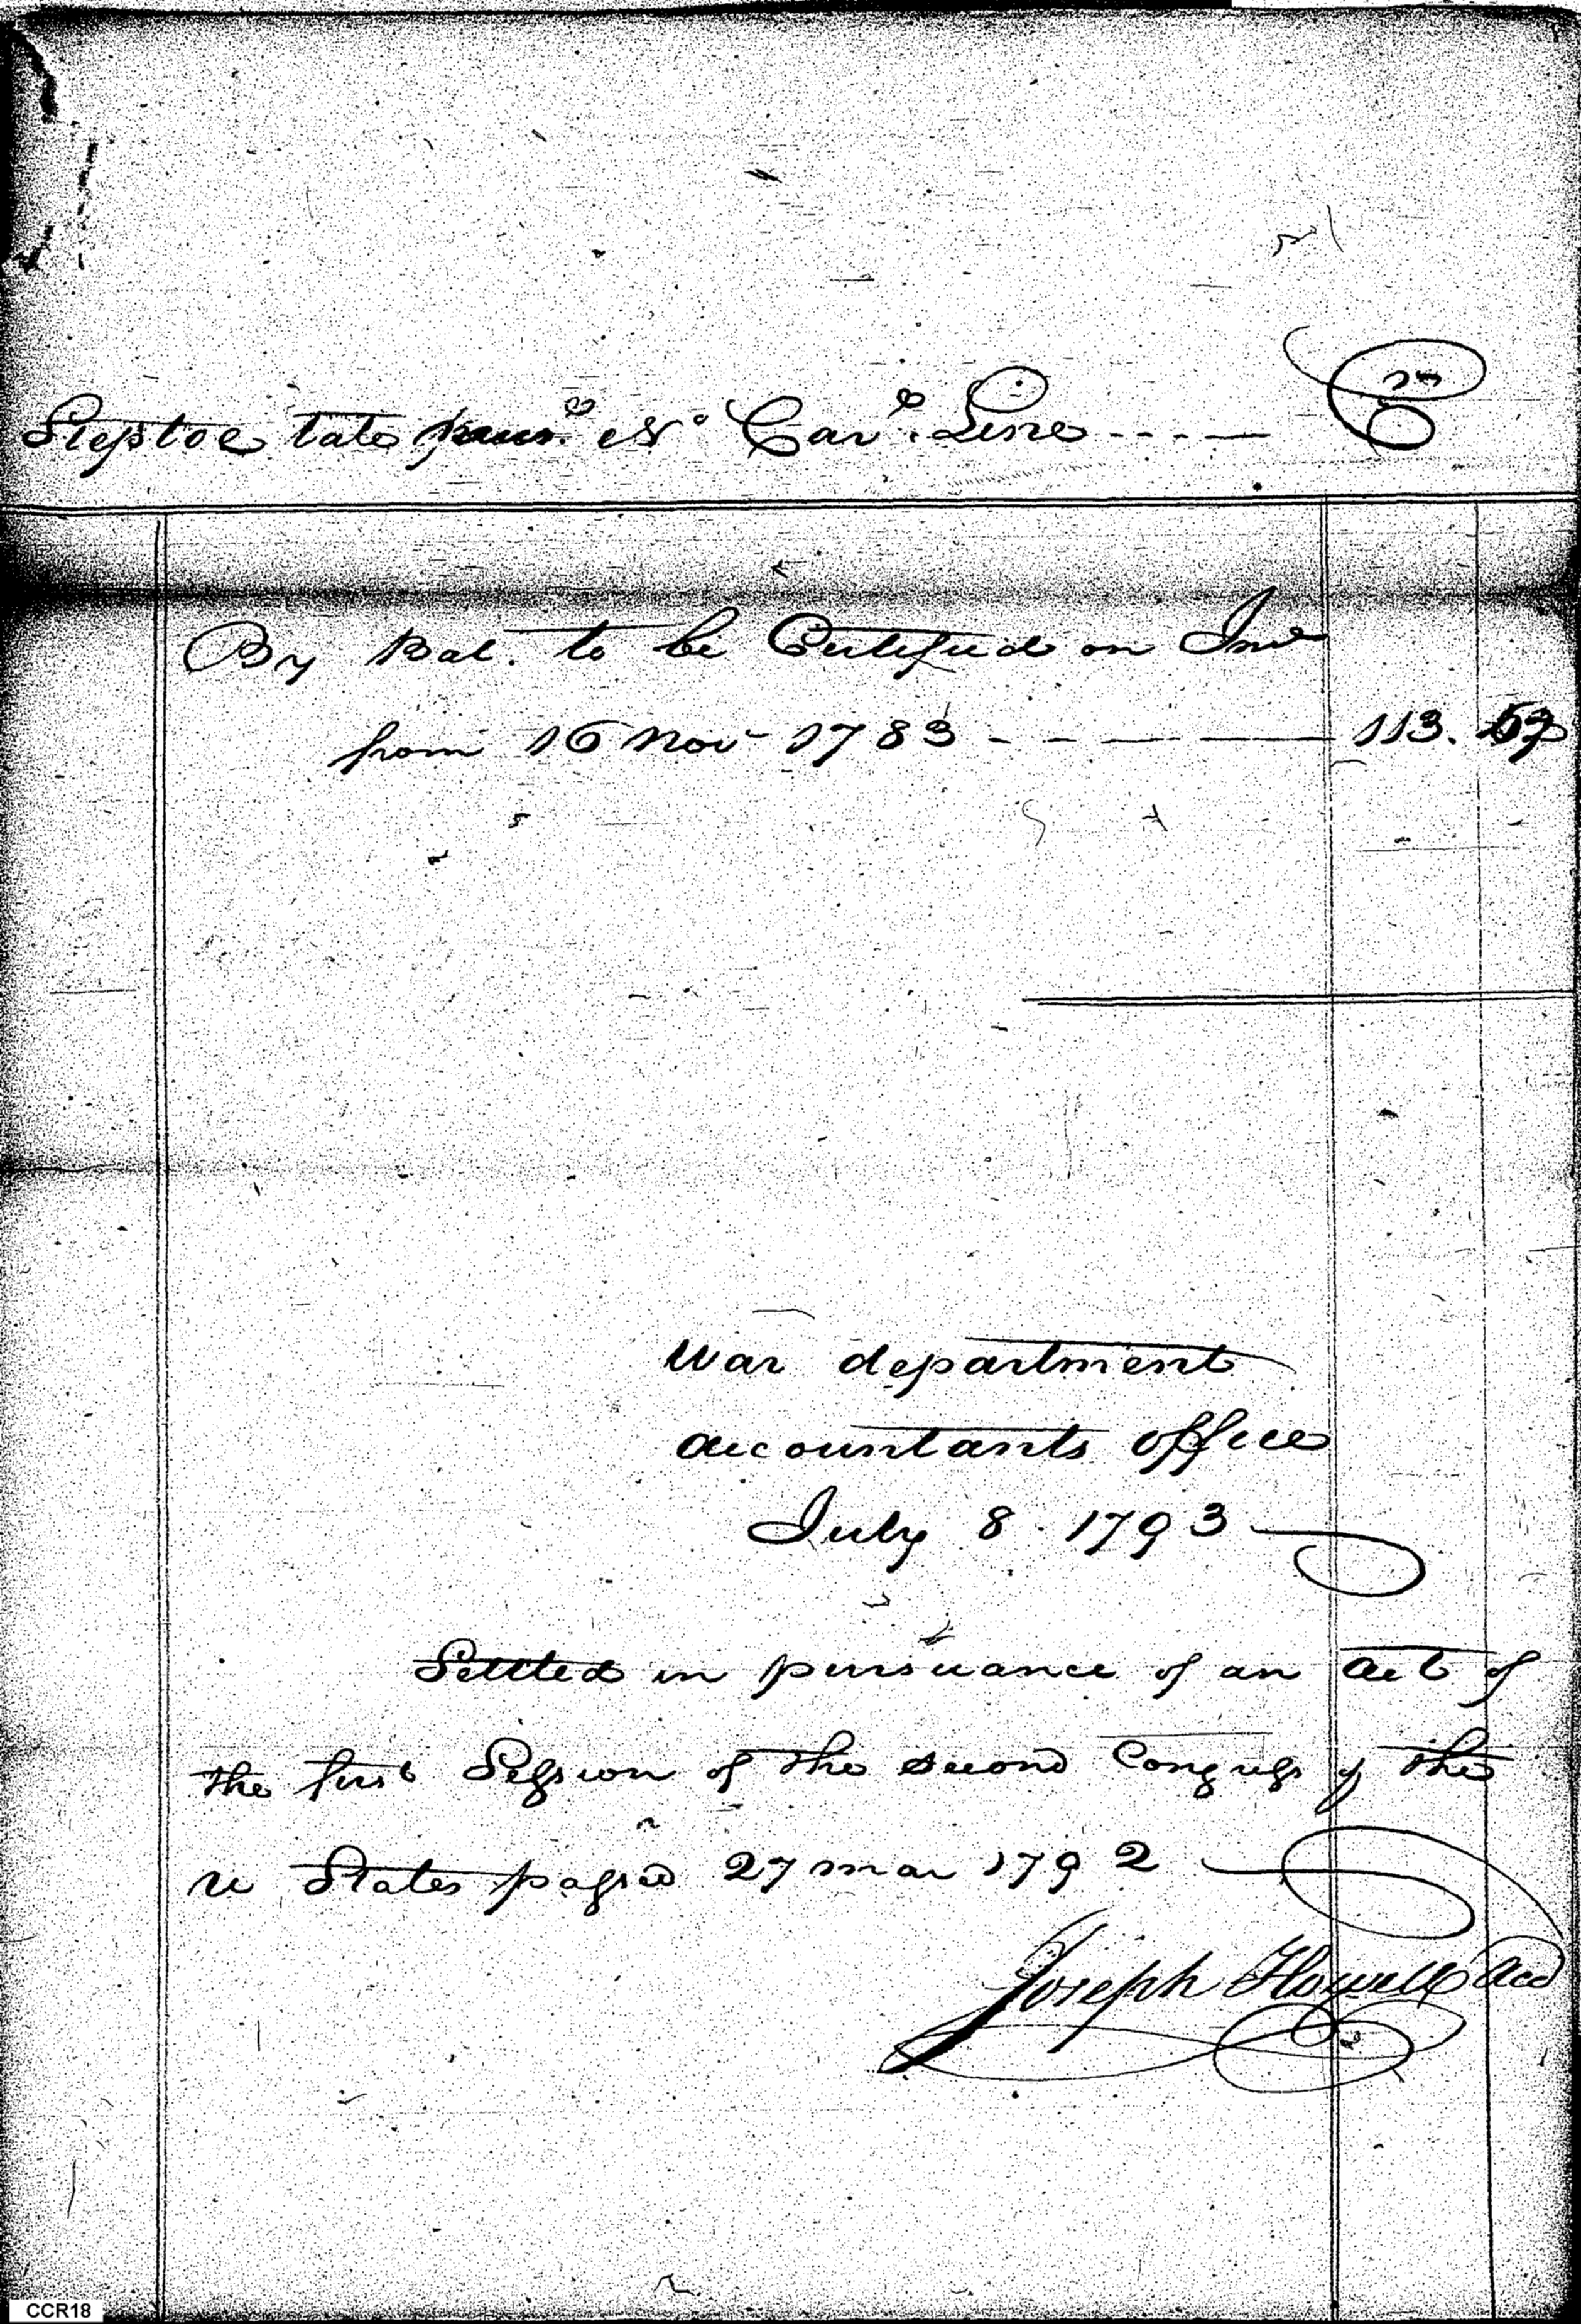 Steptoe Tate No Caro. Line Cr
By Bal. to be Certified on Int
from 16 Nov 1783 113.
War department
accountants office
July 8. 1793
Settled in pursuance of an act of
the first Session of the second Congress of the
U States passed 27 Mar 1792
Joseph Howell Acct
CCR18